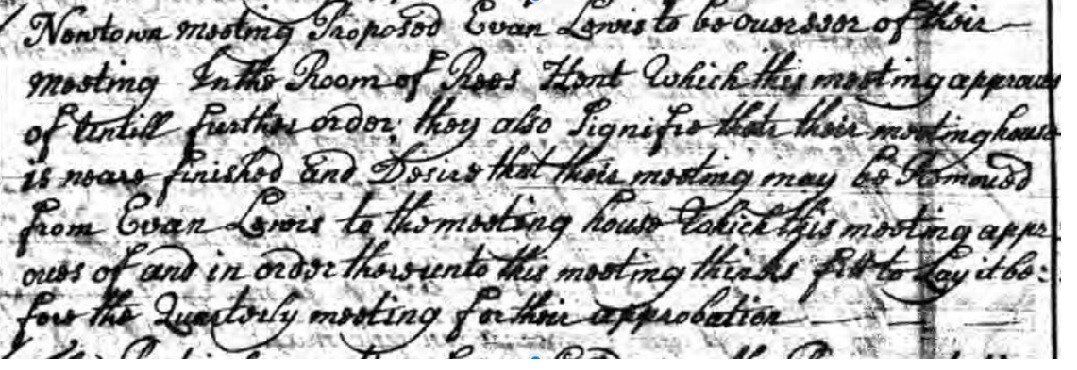 Newtown meeting Proposed Evan Lewis to be overseer of their
meeting In the Room of Rees Hent Which this meeting approves
of Untill further order; they also Signifie that their meeting house
is neare finished and Desire that their meeting may be Removed
from Evan Lewis to the meeting house Which this meeting appr
oves of and in order thereunto this meeting thinks fitt to Lay it be:
fore the Quarterly meeting for their approbation